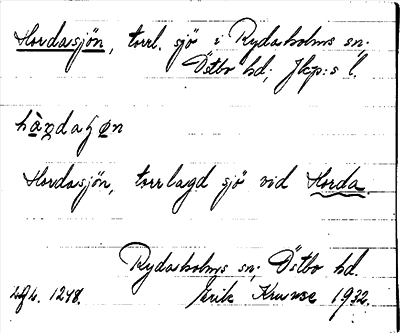 Hordasjön, torrl. sjö i Rydaholms sn;
Östbo hd; Jkp:s l.
hàṇdaʒøn
Hordasjön, torrlagd sjö vid Horda.
Rydaholms sn; Östbo hd.
1248. Erik Kruuse 1932.